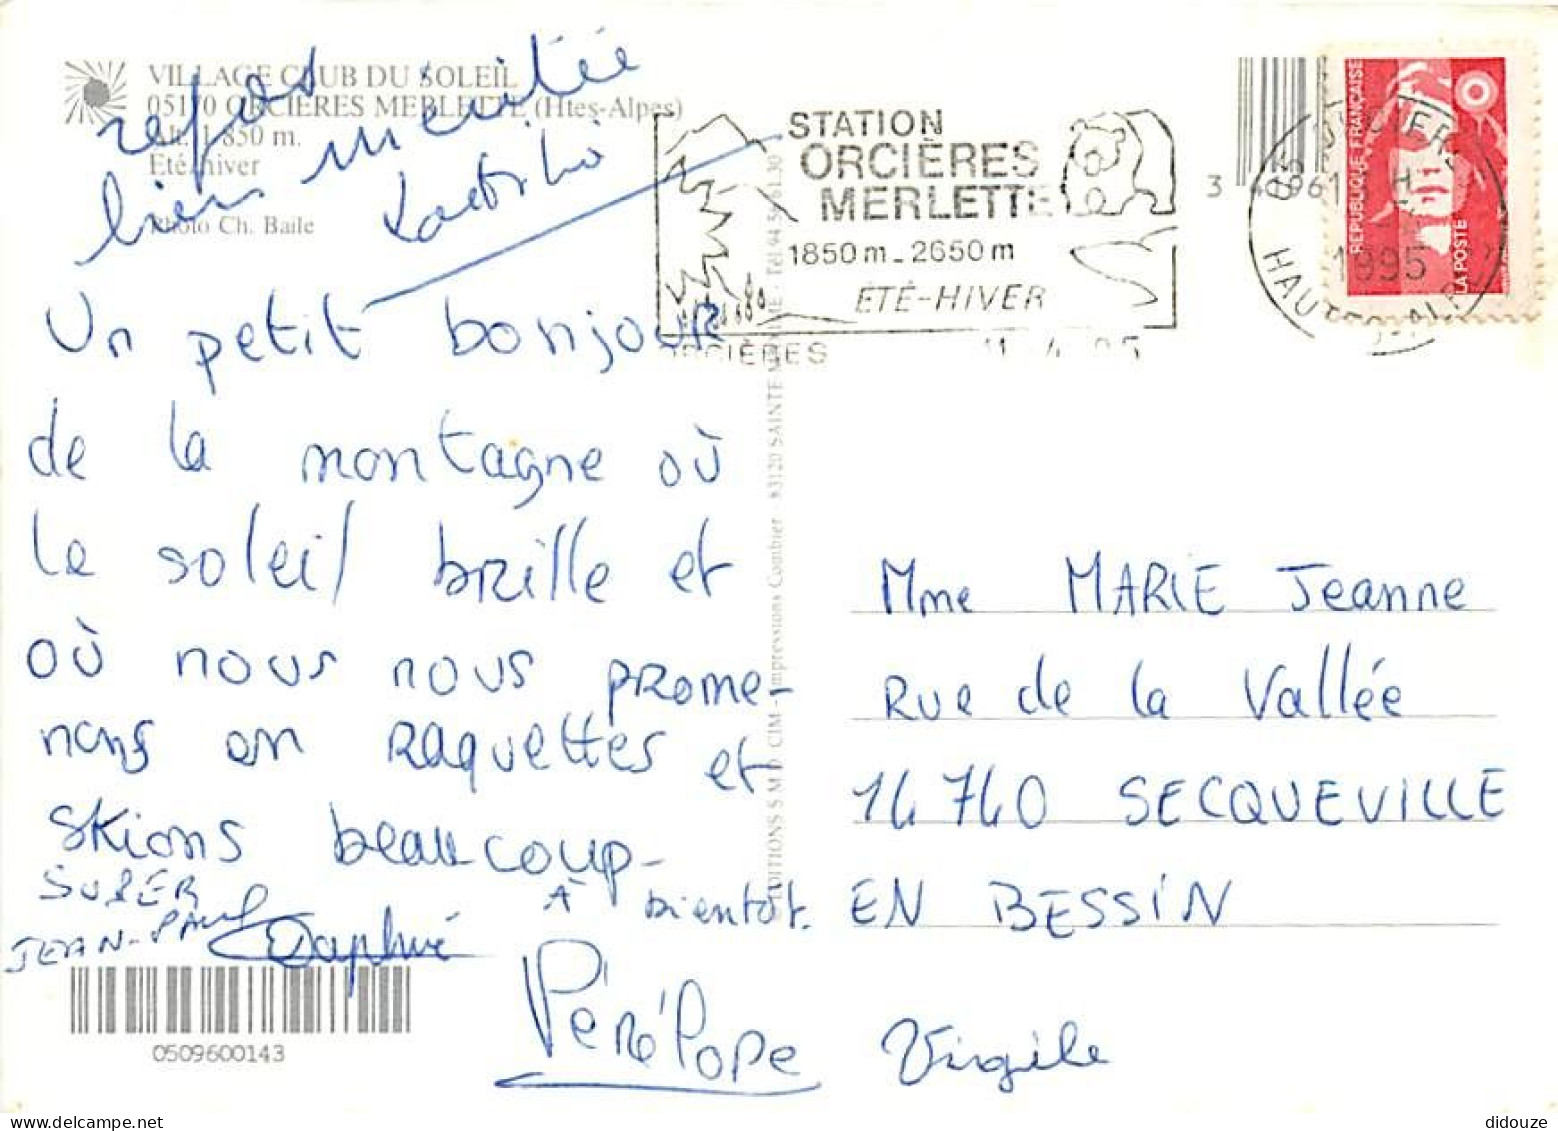 VILLAGE CLUB DU SOLEIL
05170 ORCIÈRES MERLETTE (Htes-Alpes)
Alt. 1 850 m.
Eté hiver
Photo Ch. Baile
repos
bien meritée
Un petit bonjour
de la montagne où
le soleil brille et
où nous nous prome-
nons en raquettes et
skions beaucoup-
à bientot.
SUPER
JEAN-PAUL
Daphné
Pénélope
Virgile
0509600143
STATION
ORCIÈRES
MERLETTE
1850 m - 2650 m
ÉTÉ-HIVER
ORCIÈRES
HAUTES-ALPES
1995
RÉPUBLIQUE FRANÇAISE
LA POSTE
© EDITIONS S.M.D. CIM - Impressions Combier - 83120 SAINTE MAXIME - Tél. 94.56.61.30
Mme MARIE Jeanne
Rue de la Vallée
14 740 SECQUEVILLE
EN BESSIN
didouze